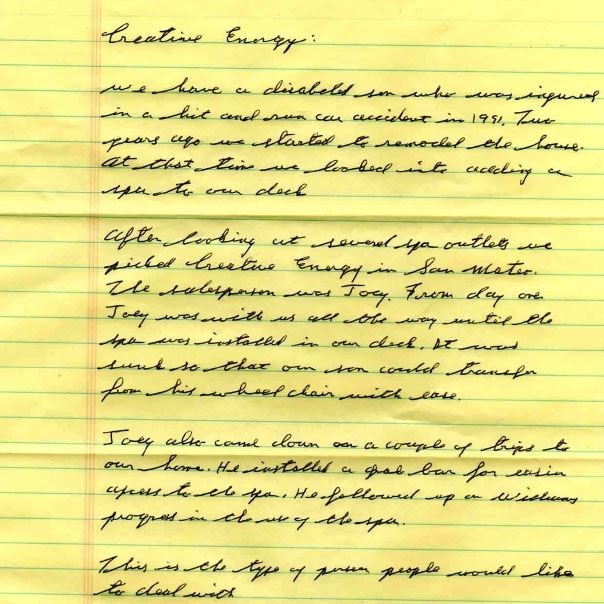 Creative Energy:
we have a disabled son who was ingured
in a hit and run car accident in 1991. Two
years ago we started to remodel the house.
At that time we looked into adding a
spa to our deck
After looking at several spa outlets we
picked Creative Energy in San Mateo.
The salesperson was Joey. From day one
Joey was with us all the way until the
spa was installed in our deck. It was
sunk so that our son could transfer
from his wheel chair with ease.
Joey also came down on a couple of trips to
our home. He installed a bar for easier
access to the spa. He followed up on
progress in the use of the spa.
This is the type of person people would like
to deal with